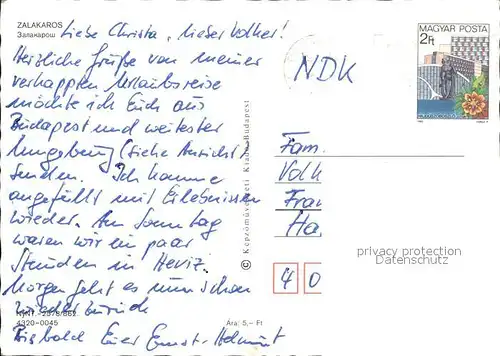 ZALAKAROS
Залакарош
Liebe Christa, lieber Volker!
Herzliche Grüße von meiner
verkappten Urlaubsreise
möchte ich Euch aus
Budapest und weitester
Umgebung (siehe Ansicht)
senden. Ich komme
angefüllt mit Erlebnissen
wieder. Am Sonntag
waren wir ein paar
Stunden in Heviz.
Morgen geht es nun schon
wieder zurück
Bis bald Euer Ernst-Helmut
4320-0045
Ára: 5,- Ft
© Képzőművészeti Kiadó Budapest
MAGYAR POSTA
2Ft
NDK
Fam.
Volk
Fran
Ha
4 0
privacy protection
Datenschutz